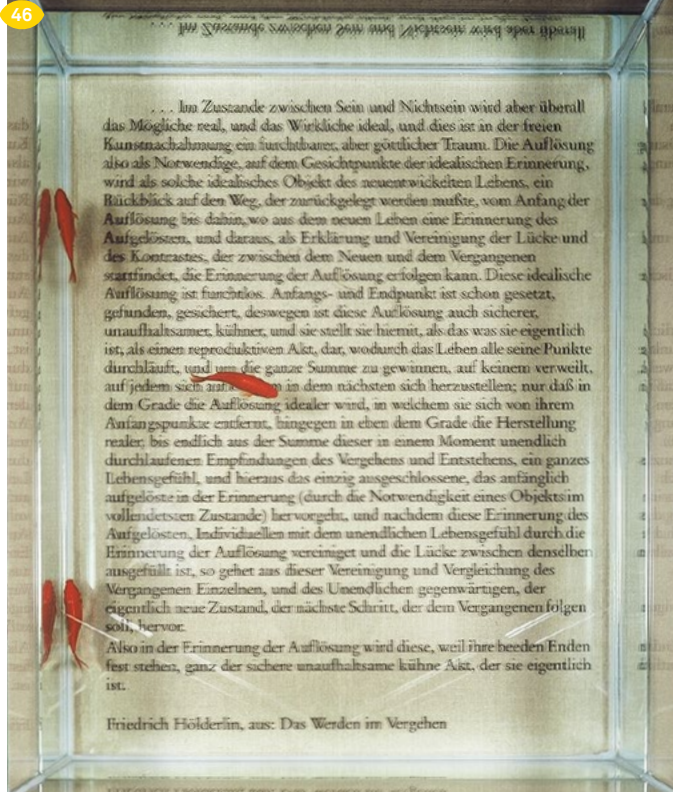 46
. . . Im Zustande zwischen Sein und Nichtsein wird aber überall
. . . Im Zustande zwischen Sein und Nichtsein wird aber überall
das Mögliche real, und das Wirkliche ideal, und dies ist in der freien
Kunstnachahmung ein furchtbarer, aber göttlicher Traum. Die Auflösung
also als Notwendige, auf dem Gesichtpunkte der idealischen Erinnerung,
wird als solche idealisches Objekt des neuentwickelten Lebens, ein
Rückblick auf den Weg, der zurückgelegt werden mußte, vom Anfang der
Auflösung bis dahin, wo aus dem neuen Leben eine Erinnerung des
Aufgelösten, und daraus, als Erklärung und Vereinigung der Lücke und
des Kontrastes, der zwischen dem Neuen und dem Vergangenen
stattfindet, die Erinnerung der Auflösung erfolgen kann. Diese idealische
Auflösung ist furchtlos. Anfangs- und Endpunkt ist schon gesetzt,
gefunden, gesichert, deswegen ist diese Auflösung auch sicherer,
unaufhaltsamer, kühner, und sie stellt sie hiemit, als das was sie eigentlich
ist, als einen reproduktiven Akt, dar, wodurch das Leben alle seine Punkte
durchläuft, und um die ganze Summe zu gewinnen, auf keinem verweilt,
auf jedem sich in dem nächsten sich herzustellen; nur daß in
dem Grade die Auflösung idealer wird, in welchem sie sich von ihrem
Anfangspunkte entfernt, hingegen in eben dem Grade die Herstellung
realer, bis endlich aus der Summe dieser in einem Moment unendlich
durchlaufenen Empfindungen des Vergehens und Entstehens, ein ganzes
Lebensgefühl, und hieraus das einzig ausgeschlossene, das anfänglich
aufgelöste in der Erinnerung (durch die Notwendigkeit eines Objekts im
vollendetsten Zustande) hervorgeht, und nachdem diese Erinnerung des
Aufgelösten, Individuellen mit dem unendlichen Lebensgefühl durch die
Erinnerung der Auflösung vereiniget und die Lücke zwischen denselben
ausgefüllt ist, so gehet aus dieser Vereinigung und Vergleichung des
Vergangenen Einzelnen, und des Unendlichen gegenwärtigen, der
eigentlich neue Zustand, der nächste Schritt, der dem Vergangenen folgen
soll, hervor.
Also in der Erinnerung der Auflösung wird diese, weil ihre beeden Enden
fest stehen, ganz der sichere unaufhaltsame kühne Akt, der sie eigentlich
ist.
Friedrich Hölderlin, aus: Das Werden im Vergehen